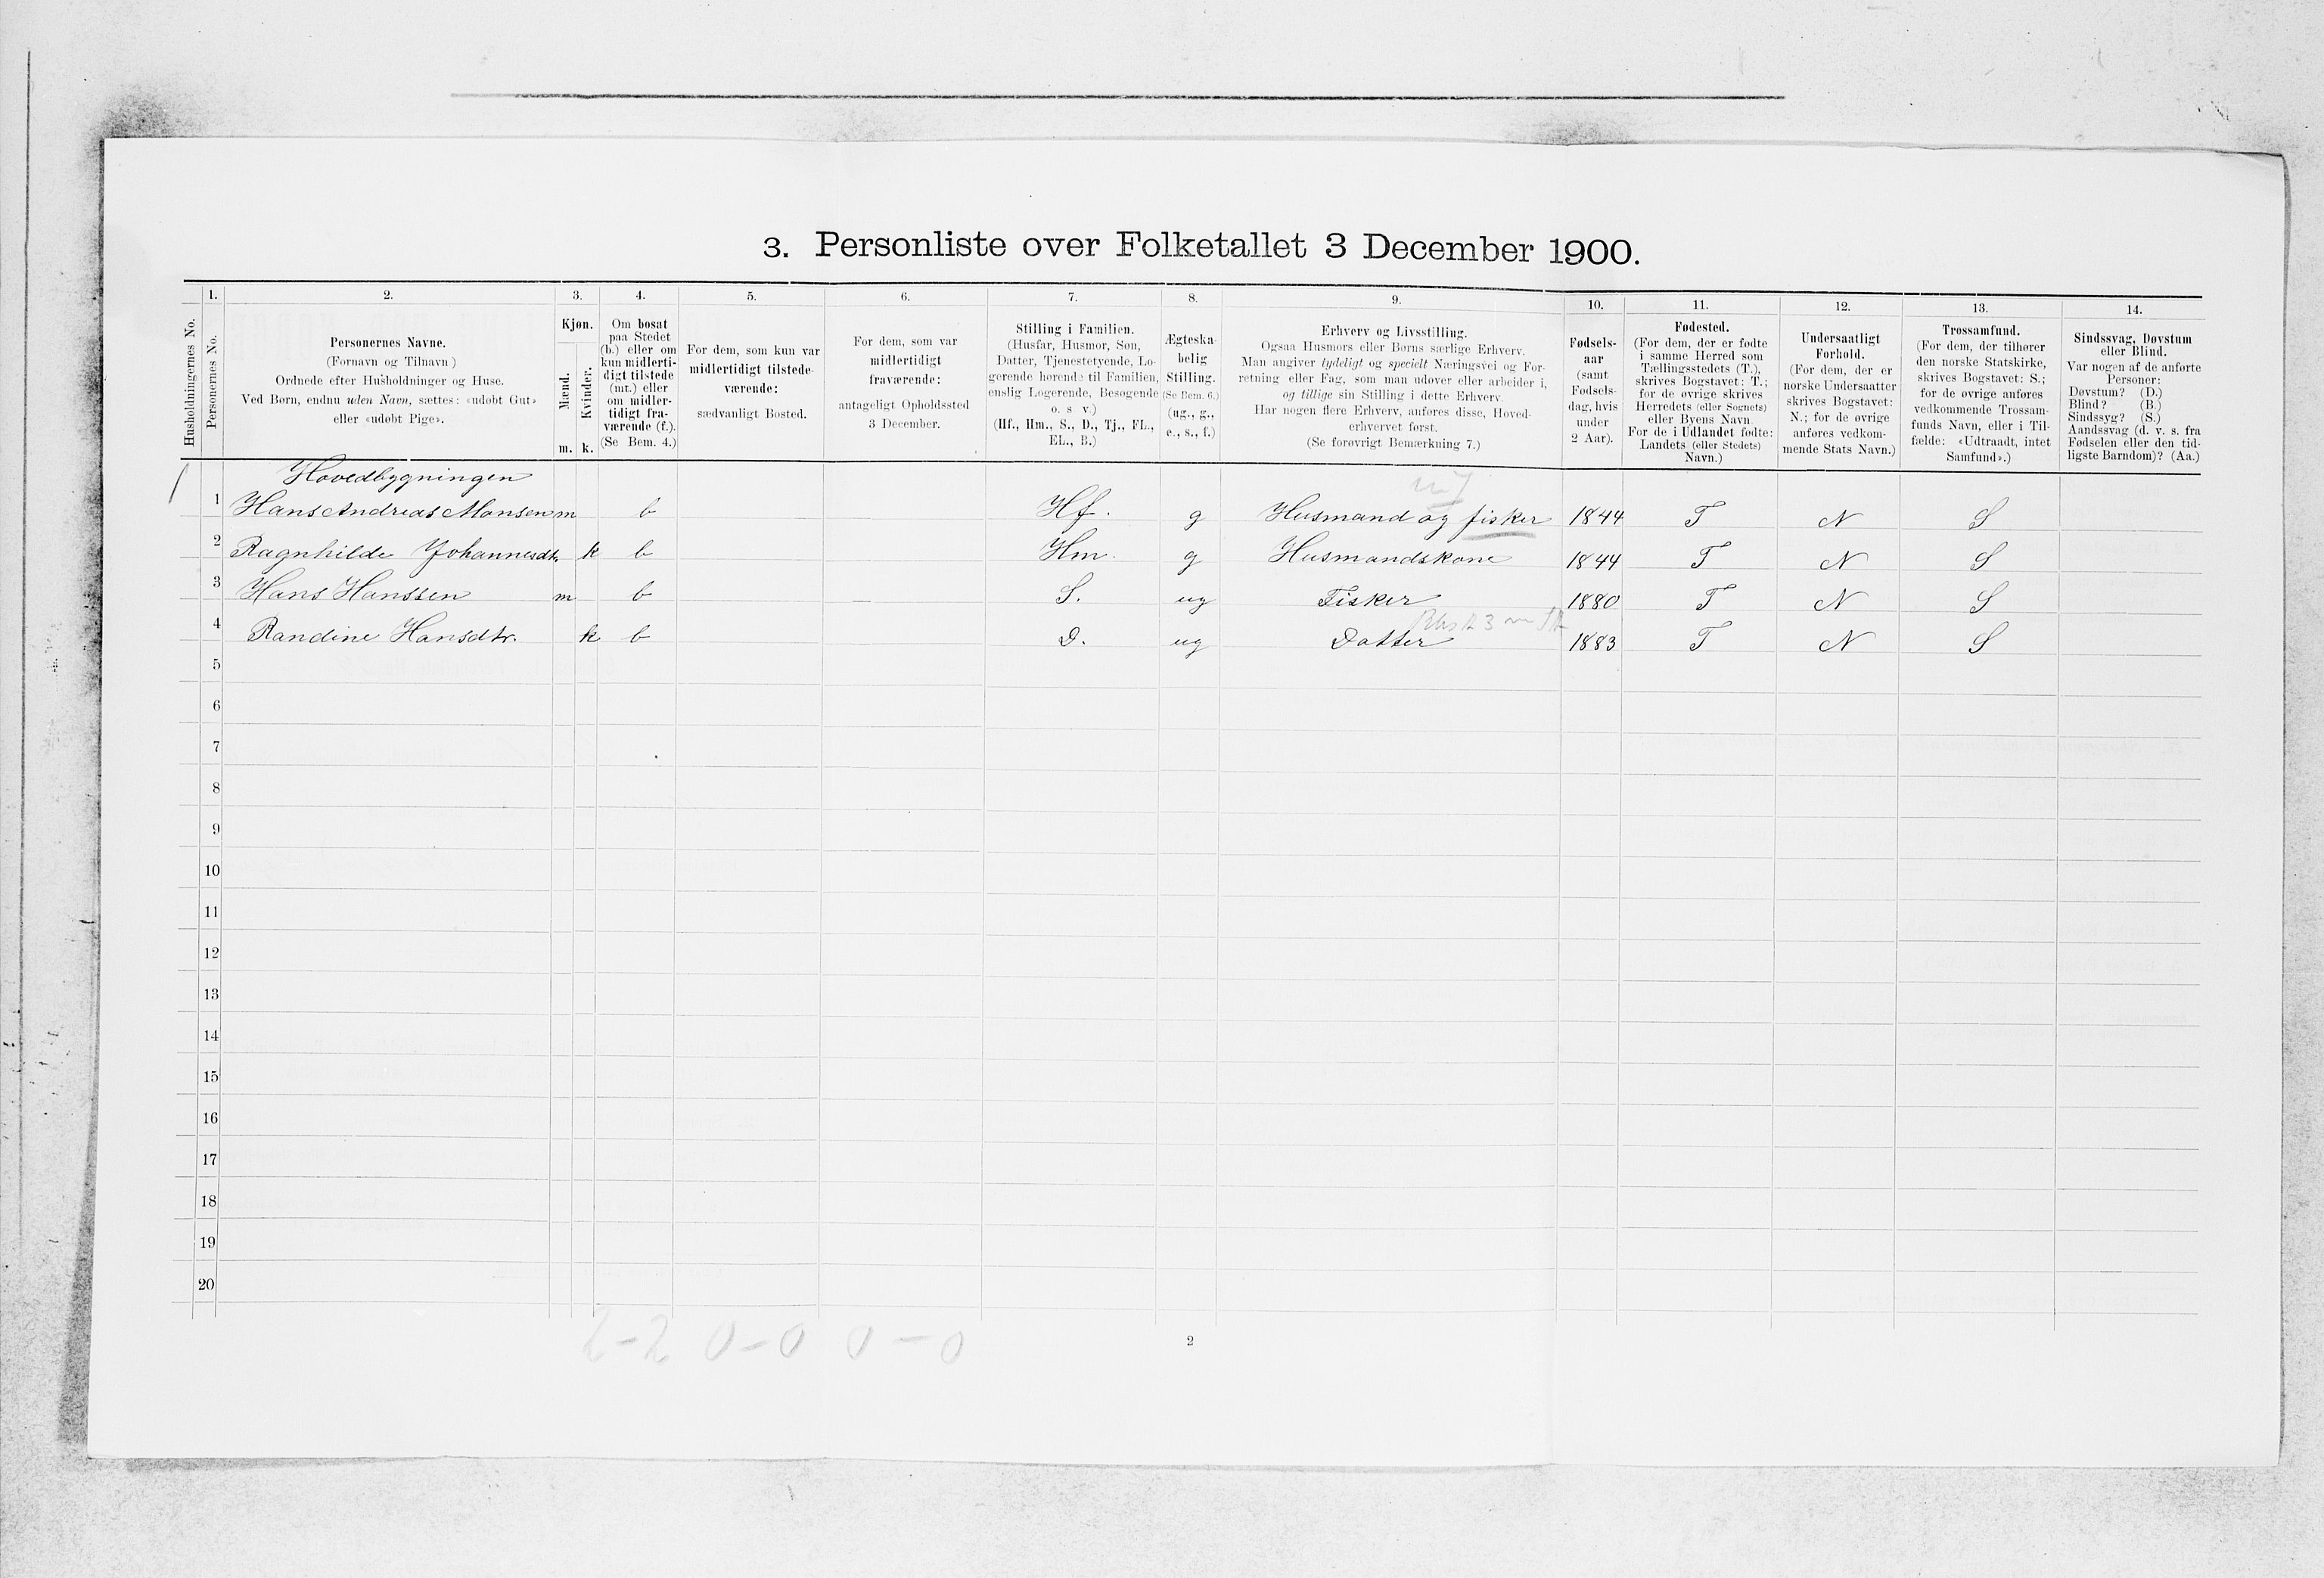 3. Personliste over Folketallet 3 December 1900.
1. 2. 3. 4. 5. 6. 7. 8. 9. 10. 11. 12. 13. 14.
Husholdningernes No.
Personernes No.
Personernes Navne.
(Fornavn og Tilnavn)
Ordnede efter Husholdninger og Huse.
Ved Børn, endnu uden Navn, sættes: «udøbt Gut»
eller «udøbt Pige».
Kjøn.
Mænd.
Kvinder.
m. k.
Om bosat
paa Stedet
(b.) eller om
kun midlerti-
digt tilstede
(mt.) eller
om midler-
tidigt fra-
værende (f.).
(Se Bem. 4.)
For dem, som kun var
midlertidigt tilstede-
værende:
sædvanligt Bosted.
For dem, som var
midlertidigt
fraværende:
antageligt Opholdssted
3 December.
Stilling i Familien.
(Husfar, Husmor, Søn,
Datter, Tjenestetyende, Lo-
gerende hørende til Familien,
enslig Logerende, Besøgende
o. s. v.)
(Hf., Hm., S., D., Tj., FL.,
EL., B.)
Ægteska-
belig
Stilling.
(Se Bem. 6.)
(ug., g.,
e., s., f.)
Erhverv og Livsstilling.
Ogsaa Husmors eller Børns særlige Erhverv.
Man angiver tydeligt og specielt Næringsvei og For-
retning eller Fag, som man udøver eller arbeider i,
og tillige sin Stilling i dette Erhverv.
Har nogen flere Erhverv, anføres disse, Hoved-
erhvervet først.
(Se forøvrigt Bemærkning 7.)
Fødsels-
aar
(samt
Fødsels-
dag, hvis
under
2 Aar).
Fødested.
(For dem, der er fødte
i samme Herred som
Tællingsstedets (T.),
skrives Bogstavet: T.;
for de øvrige skrives
Herredets (eller Sognets)
eller Byens Navn.
For de i Udlandet fødte:
Landets (eller Stedets)
Navn.)
Undersaatligt
Forhold.
(For dem, der er
norske Undersaatter
skrives Bogstavet:
N.; for de øvrige
anføres vedkom-
mende Stats Navn.)
Trossamfund.
(For dem, der tilhører
den norske Statskirke,
skrives Bogstavet: S.;
for de øvrige anføres
vedkommende Trossam-
funds Navn, eller i Til-
fælde: «Udtraadt, intet
Samfund».)
Sindssvag, Døvstum
eller Blind.
Var nogen af de anførte
Personer:
Døvstum? (D.)
Blind? (B.)
Sindssyg? (S.)
Aandssvag (d. v. s. fra
Fødselen eller den tid-
ligste Barndom)? (Aa.)
Hovedbygningen
1 Hans Andreas Monsen m b Hf. g Husmand og fisker 1844 T N S
2 Ragnhilde Johannesdtr. k b Hm. g Husmandskone 1844 T N S
3 Hans Hanssen m b — S. ug Fisker 1880 T N S
4 Randine Hansdtr. k b D. ug Datter 1883 T N S
5
6
7
8
9
10
11
12
13
14
15
16
17
18
19
20
2-2 0-0 0-0
2